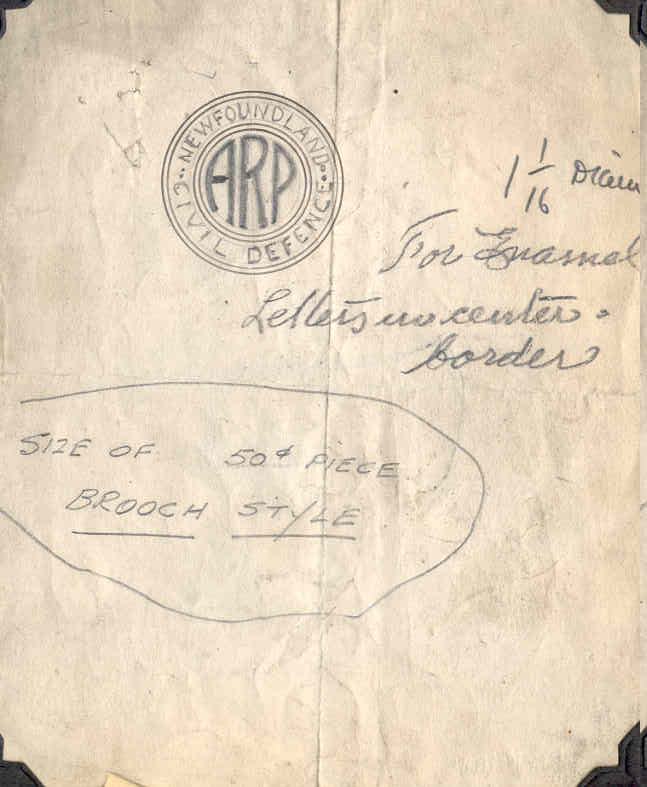 NEWFOUNDLAND
ARP
CIVIL DEFENCE
1 1/16 Diam
For Enamel
Letters no center
border
SIZE OF 50¢ PIECE
BROOCH STYLE